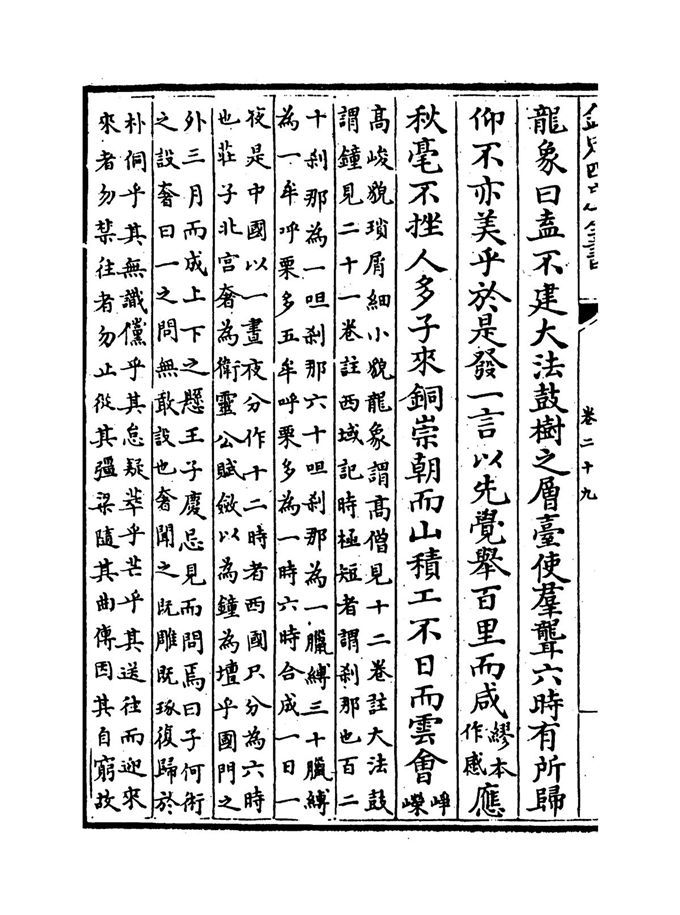 欽定四庫全書
卷二十九
龍象曰盍不建大法鼓樹之層臺使羣聾六時有所歸
仰不亦美乎於是發一言以先覺舉百里而咸繆本作感應
秋毫不挫人多子來銅崇朝而山積工不日而雲會崢嶸
高峻貌瑣屑細小貌龍象謂高僧見十二卷註大法鼓
謂鐘見二十一卷註西域記時極短者謂刹那也百二
十刹那為一呾刹那六十呾刹那為一臘縛三十臘縛
為一牟呼栗多五牟呼栗多為一時六時合成一日一
夜是中國以一晝夜分作十二時者西國只分為六時
也莊子北宮奢為衛靈公賦斂以為鐘為壇乎國門之
外三月而成上下之懸王子慶忌見而問焉曰子何術
之設奢曰一之問無敢設也奢聞之既雕既琢復歸於
朴侗乎其無識儻乎其怠疑萃乎芒乎其送往而迎來
來者勿禁往者勿止從其彊梁隨其曲傳因其自窮故